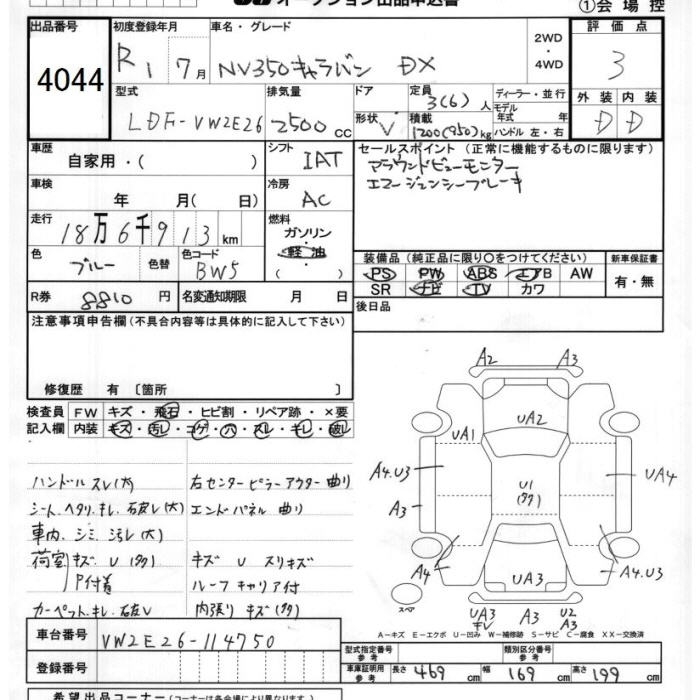 オークション出品申込書
①会場控
出品番号
4044
初度登録年月
R1 7月
車名・グレード
NV350キャラバン DX
2WD
・
4WD
評価点
3
外装 内装
D D
型式
LDF-VW2E26
排気量
2500cc
ドア
形状 V
定員
3(6)人
積載
1200(950)kg
ディーラー・並行
モデル
年式 年
ハンドル 左・右
車歴
自家用・( )
シフト
IAT
セールスポイント (正常に機能するものに限ります)
アラウンドビューモニター
エマージェンシーブレーキ
車検
年 月( 日)
冷房
AC
走行
18万6千913km
燃料
ガソリン
・軽油
( )
色
ブルー
色替
色コード
BW5
装備品 (純正品に限り○をつけてください)
PS PW ABS エアB AW
SR ナビ TV カワ
新車保証書
有・無
R券 8810円
名変通知期限 月 日
後日品
注意事項申告欄(不具合内容等は具体的に記入して下さい)
修復歴 有 〔箇所 〕
検査員
記入欄
FW キズ・飛石・ヒビ割・リペア跡・×要
内装 キズ・汚し・コゲ・穴・スレ・キレ・破レ
ハンドル スレ(大)
シート ヘタリ、キレ、破レ(大)
車内 シミ 汚レ(大)
荷室 キズ U (多)
P付着
カーペット キレ 破レ
右センターピラーアウター曲り
エンドパネル 曲り
キズ U スリキズ
ルーフキャリア付
内張り キズ(多)
A2 A3
UA2
UA1
A4.U3
A3
U1
(多)
UA4
A4
UA3
A4.U3
スペア
UA3
キレ
A3
U2
A3
A-キズ E-エクボ U-凹み W-補修跡 S-サビ C-腐食 XX-交換済
車台番号
VW2E26-114750
登録番号
型式指定番号
参考
類別区分番号
参考
車庫証明用
参考
長さ 469cm 幅 169cm 高さ 199cm
希望出品コーナー(コーナーは各会場により異なります。)